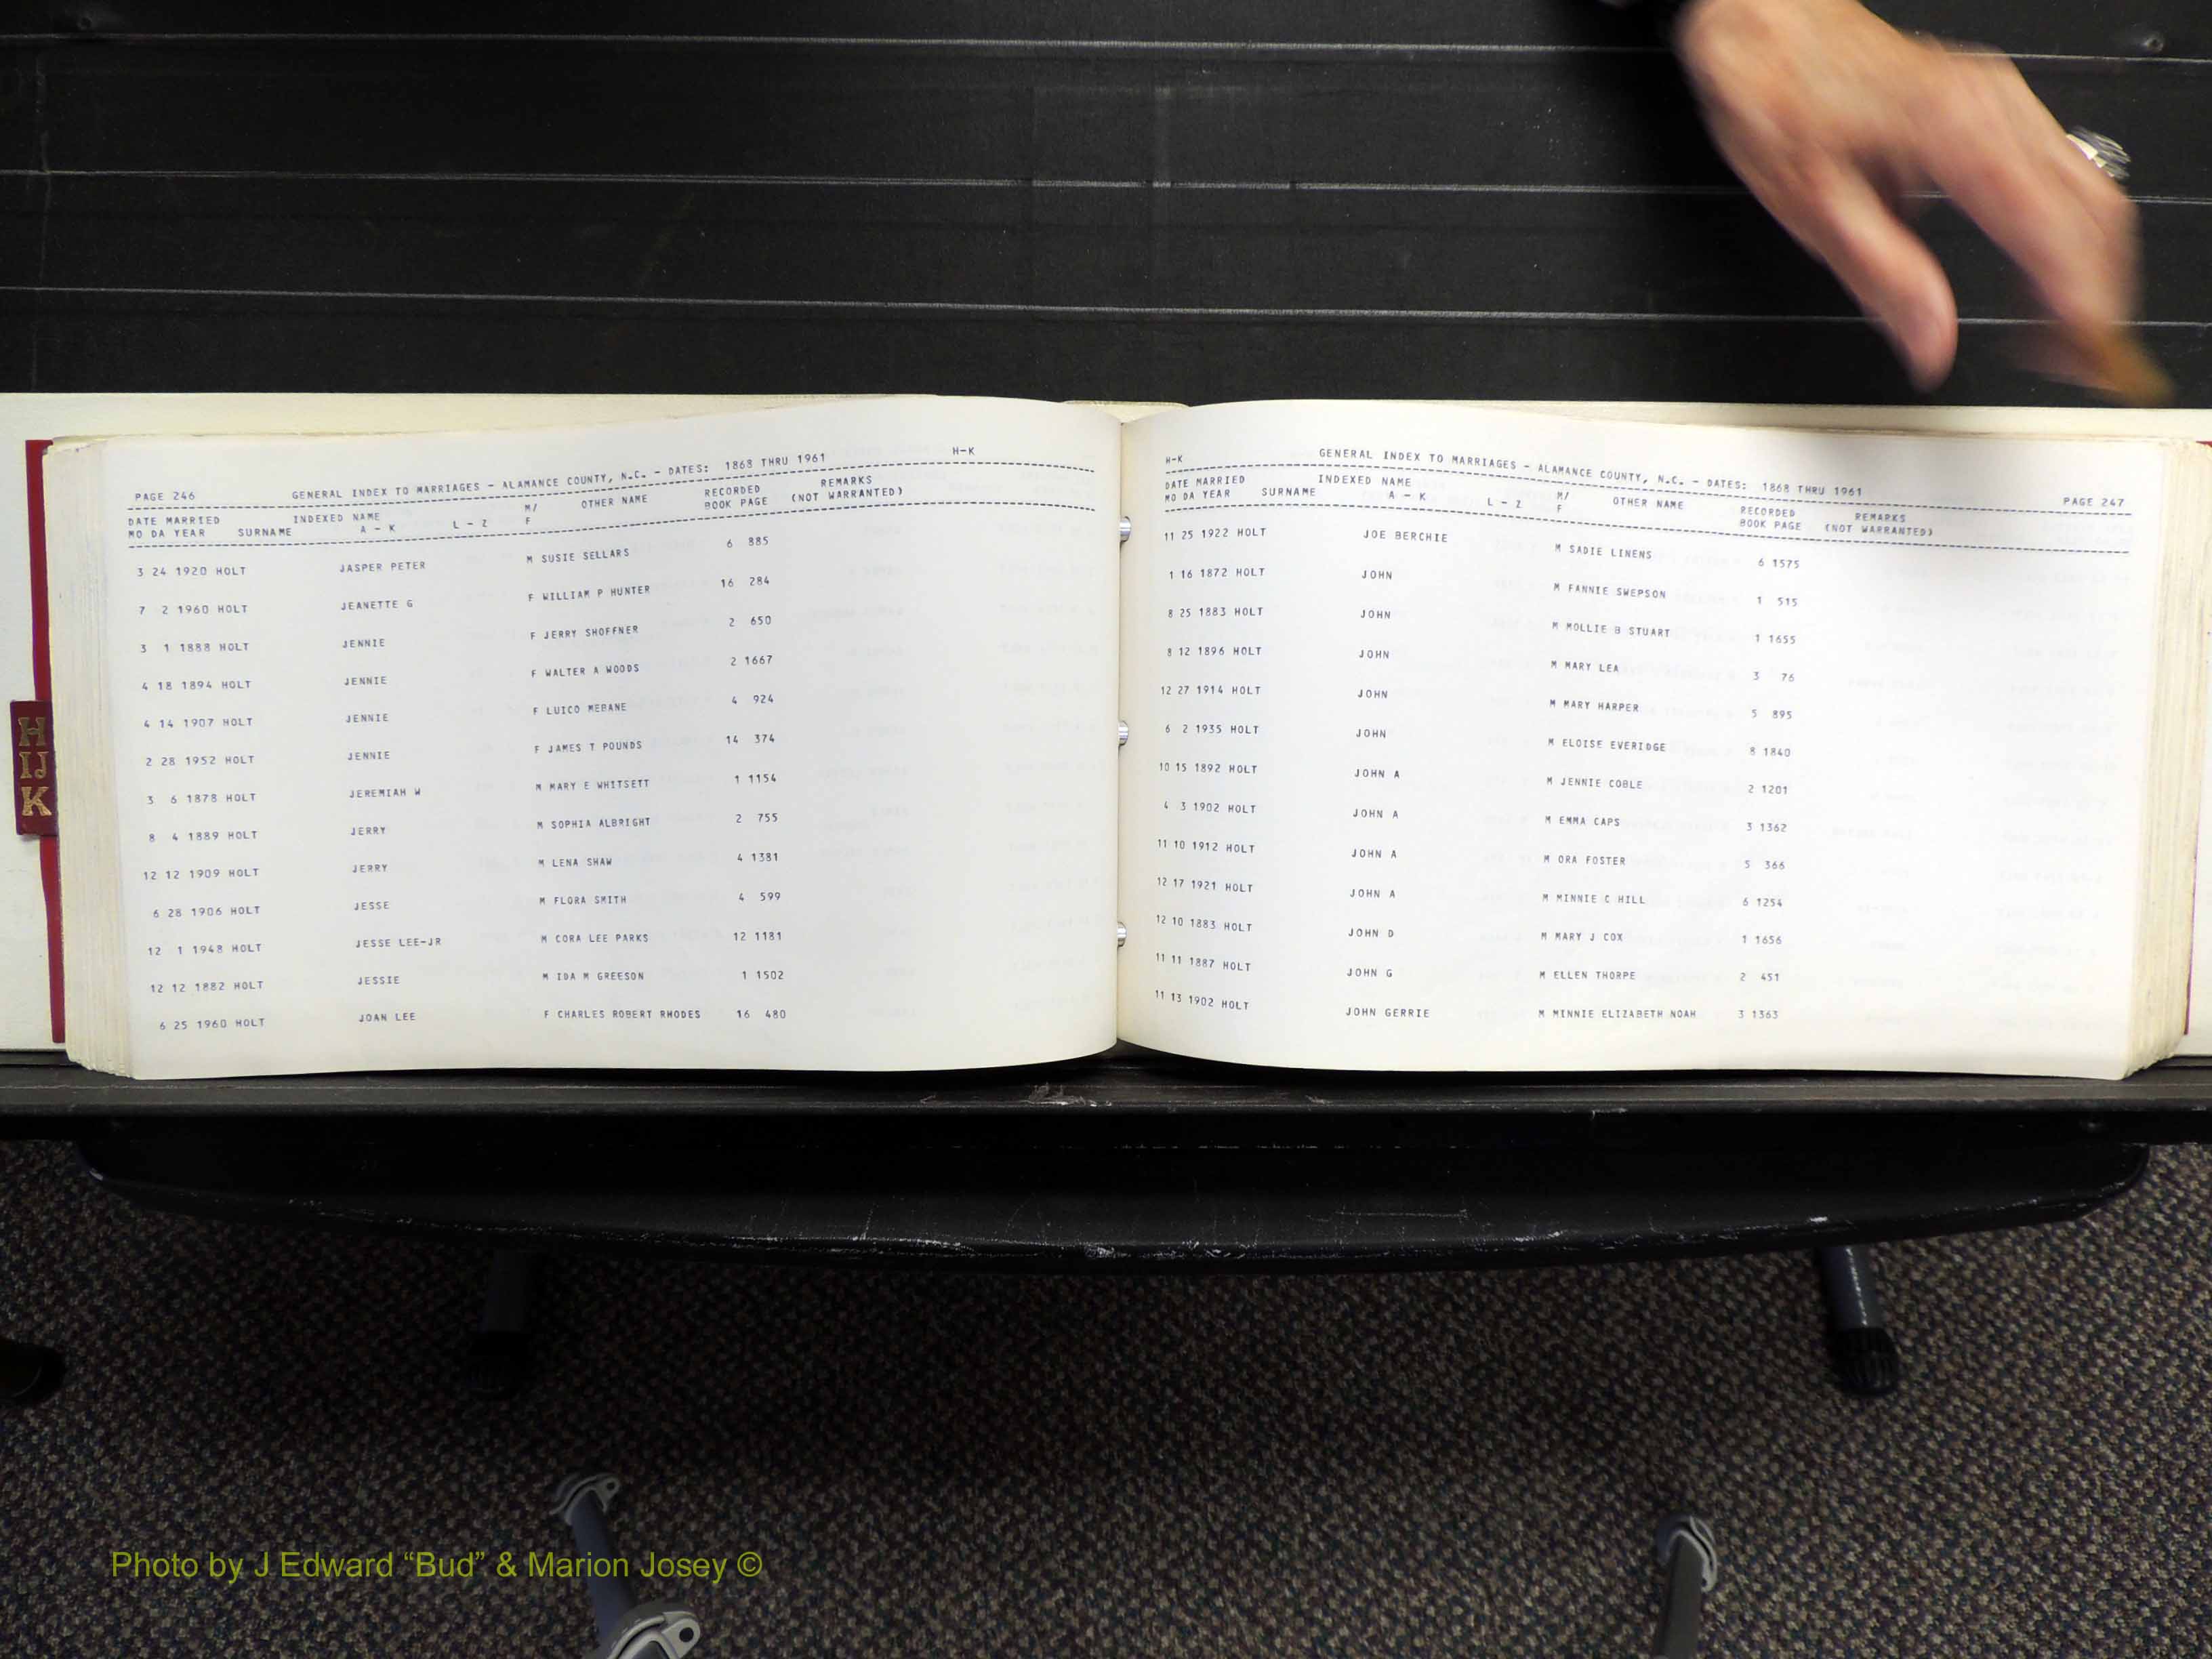 PAGE 246 GENERAL INDEX TO MARRIAGES - ALAMANCE COUNTY, N.C. - DATES: 1868 THRU 1961 H-K
DATE MARRIED INDEXED NAME M/ OTHER NAME RECORDED REMARKS
MO DA YEAR SURNAME A - K L - Z F BOOK PAGE (NOT WARRANTED)
3 24 1920 HOLT JASPER PETER M SUSIE SELLARS 6 885
7 2 1960 HOLT JEANETTE G F WILLIAM P HUNTER 16 284
3 1 1888 HOLT JENNIE F JERRY SHOFFNER 2 650
4 18 1894 HOLT JENNIE F WALTER A WOODS 2 1667
4 14 1907 HOLT JENNIE F LUICO MEBANE 4 924
2 28 1952 HOLT JENNIE F JAMES T POUNDS 14 374
3 6 1878 HOLT JEREMIAH W M MARY E WHITSETT 1 1154
8 4 1889 HOLT JERRY M SOPHIA ALBRIGHT 2 755
12 12 1909 HOLT JERRY M LENA SHAW 4 1381
6 28 1906 HOLT JESSE M FLORA SMITH 4 599
12 1 1948 HOLT JESSE LEE-JR M CORA LEE PARKS 12 1181
12 12 1882 HOLT JESSIE M IDA M GREESON 1 1502
6 25 1960 HOLT JOAN LEE F CHARLES ROBERT RHODES 16 480
H-K GENERAL INDEX TO MARRIAGES - ALAMANCE COUNTY, N.C. - DATES: 1868 THRU 1961 PAGE 247
DATE MARRIED INDEXED NAME M/ OTHER NAME RECORDED REMARKS
MO DA YEAR SURNAME A - K L - Z F BOOK PAGE (NOT WARRANTED)
11 25 1922 HOLT JOE BERCHIE M SADIE LINENS 6 1575
1 16 1872 HOLT JOHN M FANNIE SWEPSON 1 515
8 25 1883 HOLT JOHN M MOLLIE B STUART 1 1655
8 12 1896 HOLT JOHN M MARY LEA 3 76
12 27 1914 HOLT JOHN M MARY HARPER 5 895
6 2 1935 HOLT JOHN M ELOISE EVERIDGE 8 1840
10 15 1892 HOLT JOHN A M JENNIE COBLE 2 1201
4 3 1902 HOLT JOHN A M EMMA CAPS 3 1362
11 10 1912 HOLT JOHN A M ORA FOSTER 5 366
12 17 1921 HOLT JOHN A M MINNIE C HILL 6 1254
12 10 1883 HOLT JOHN D M MARY J COX 1 1656
11 11 1887 HOLT JOHN G M ELLEN THORPE 2 451
11 13 1902 HOLT JOHN GERRIE M MINNIE ELIZABETH NOAH 3 1363
H
IJ
K
Photo by J Edward “Bud” & Marion Josey ©